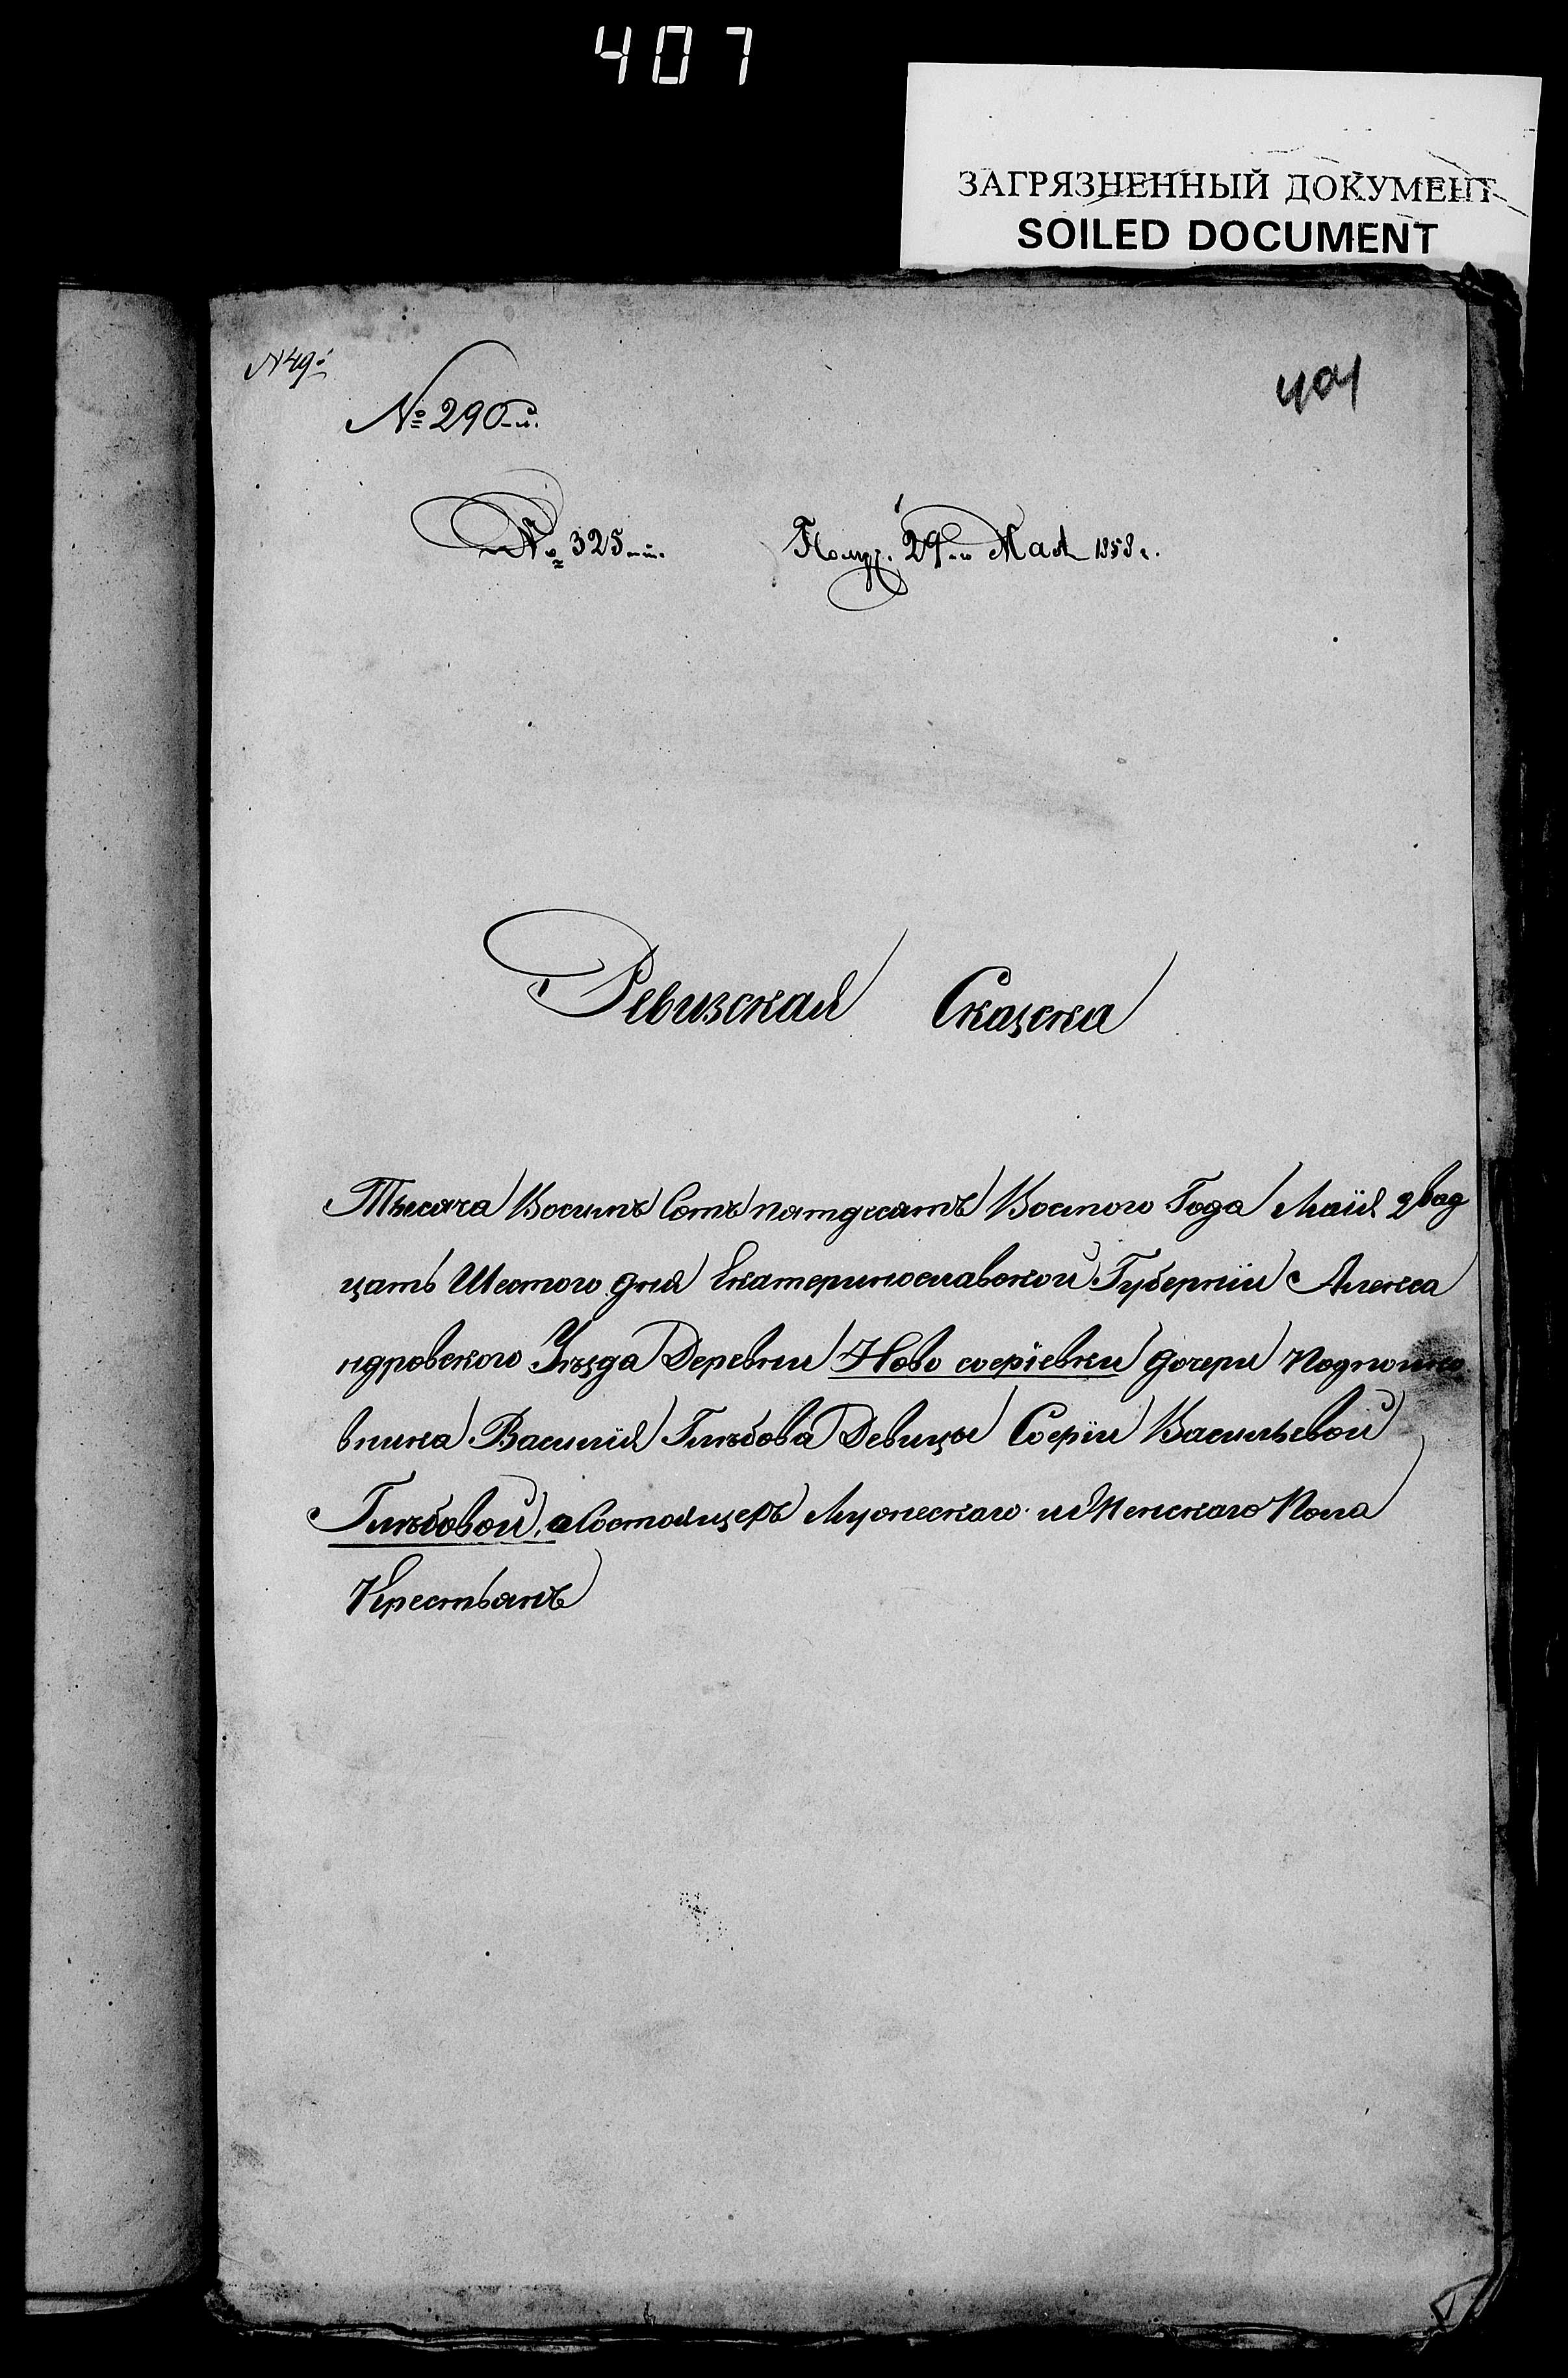 407
ЗАГРЯЗНЕННЫЙ ДОКУМЕНТ
SOILED DOCUMENT
N 49й
401
№ 290-й.
№ 325-й. Получ. 29-го Мая 1858 г.
Ревизская Сказска
Тысяча Восимъ Сотъ пятдесятъ Восмого Года Маія двад
цать Шестого дня Екатеринославской Губерніи Алекса
ндровского Уѣзда Деревни Ново софіевки дочери Подполко
вника Василія Глѣбова Девицы Софіи Васильевой
Глѣбовой, о Состоящехъ Мужескаго и Женскаго Пола
Крестьянъ